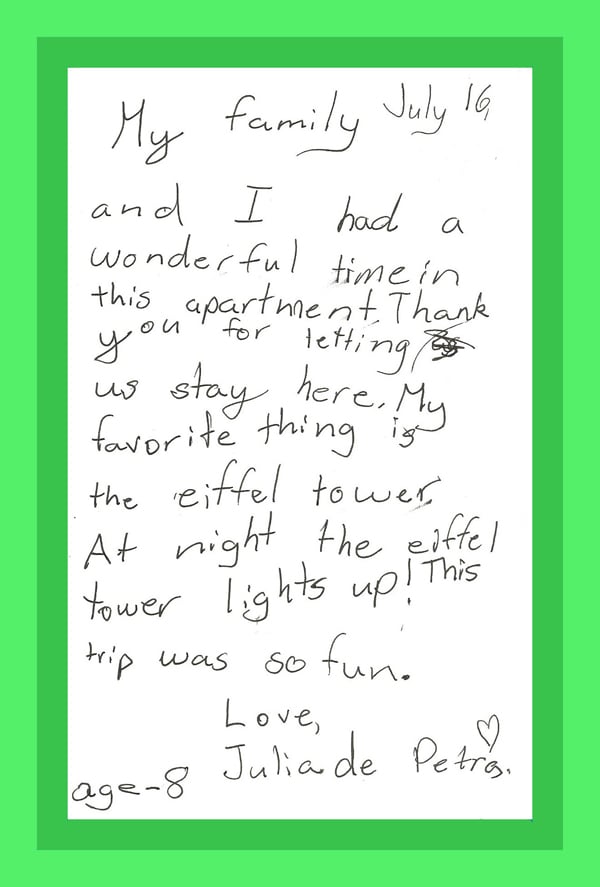 My family July 16,
and I had a
wonderful time in
this apartment. Thank
you for letting
us stay here. My
favorite thing is
the eiffel tower.
At night the eiffel
tower lights up! This
trip was so fun.
Love,
Julia de Petra.
age-8